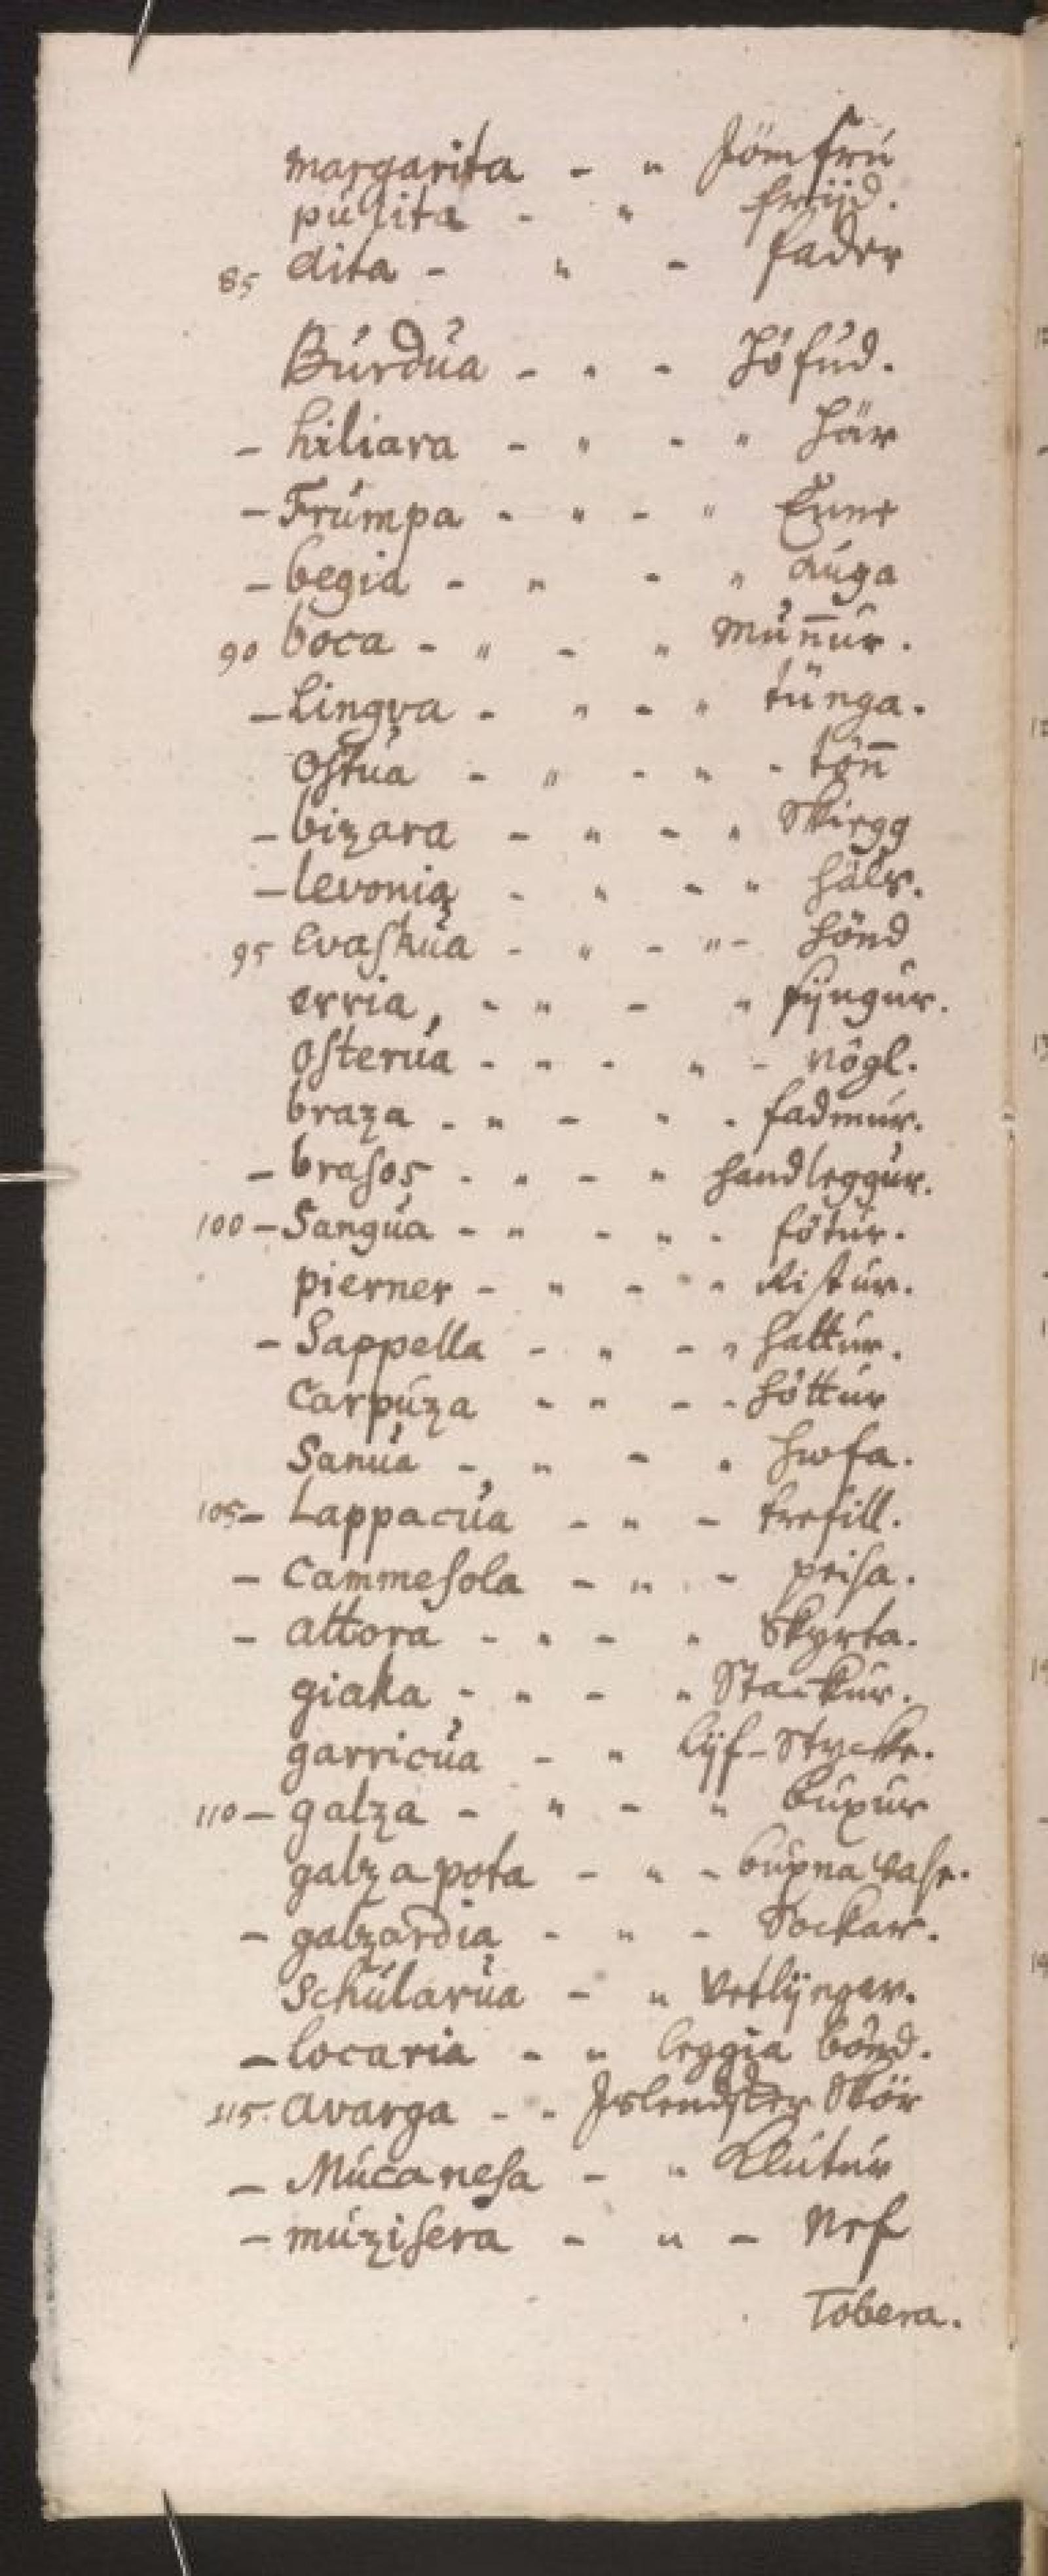 margarita - „ Jömfrú
púllita - „ frijd.
85 dita - „ - fader
Búrdúa - „ - Höfúd.
- hiliara - „ - „ Här
- Frúmpa - „ - „ Enne
- begia - „ - „ auga
90 boca - „ - „ Mun̄úr.
- Lingva - „ - „ túnga.
Ostúa - „ - „ - tön̄
- bizara - „ - „ Skiegg
- levonia - „ - „ Háls.
95 Evaskúa - „ - „ - Hönd
erria, - „ - „ fijngúr.
Osterúa - - - „ - nögl.
braza - „ - „ - fadmúr.
- brasos - „ - „ Handleggúr.
100 - Sangúa - „ - „ - fötúr.
pierner - „ - „ Ristúr.
- Sappella - „ - „ Hattúr.
Carpúza - „ - - Höttúr
Sanúa - „ - „ Hwfa.
105 - Lappacúa - „ - trefill.
- Cammesola - „ - peisa.
- attora - „ - „ Skyrta.
giaka - „ - „ Stackúr.
garricúa - „ Lijf-Stycke.
110 - galza - „ - „ buxur
galza pota - „ - buxna vase.
- galzardia - „ - Sockar.
Schúlarúa - „ Vetlijngar.
- locaria - „ leggia bönd.
115. avarga - - Jslendsker Skör
- Múcanesa - „ Klútúr
- múzisera - „ - Nef
Tobera.